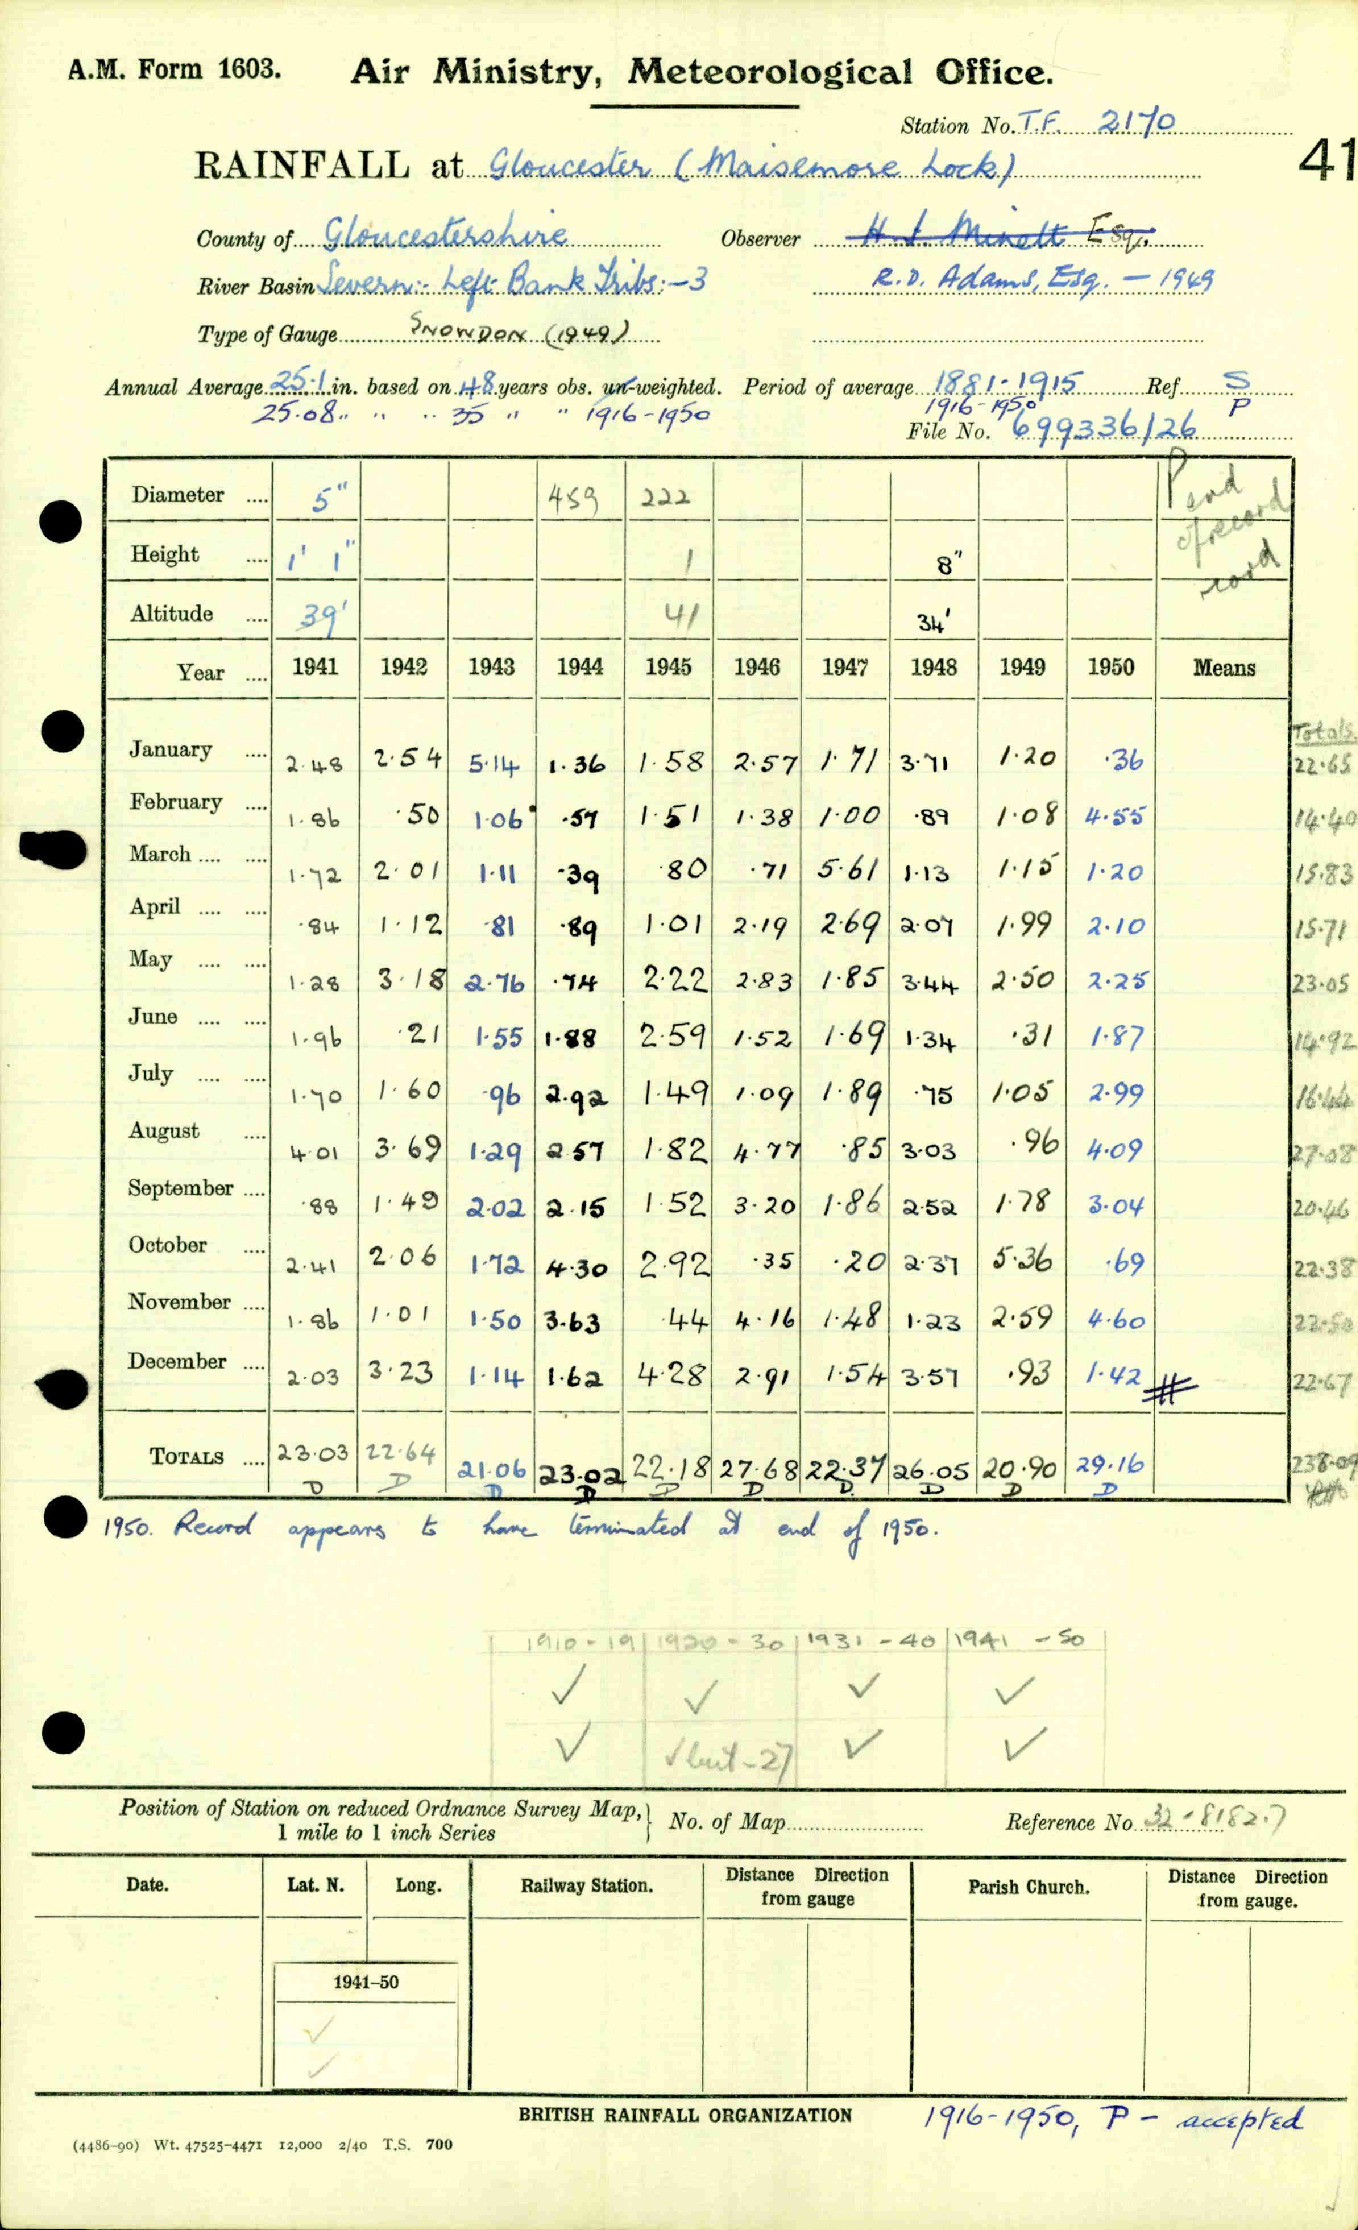 A.M. Form 1603. Air Ministry, Meteorological Office.
Station No. T.F. 2170
RAINFALL at Gloucester (Maisemore Lock) 41
County of Gloucestershire Observer H. J. Minett Esq.
River Basin Severn:- Left Bank Tribs:-3 R.D. Adams, Esq. – 1949
Type of Gauge SNOWDON (1949)
Annual Average 25.1 in. based on 48 years obs. un-weighted. Period of average 1881-1915 Ref. S
25.08 " " " 35 " " 1916-1950 1916-1950 P
File No. 699336/26
Diameter .... 5" 459 222 P end
Height .... 1' 1" 1 8" of record
Altitude .... 39' 41 34'
Year .... 1941 1942 1943 1944 1945 1946 1947 1948 1949 1950 Means
Totals
January .... 2.48 2.54 5.14 1.36 1.58 2.57 1.71 3.71 1.20 .36 22.65
February .... 1.86 .50 1.06 .57 1.51 1.38 1.00 .89 1.08 4.55 14.40
March .... .... 1.72 2.01 1.11 .39 .80 .71 5.61 1.13 1.15 1.20 15.83
April .... .... .84 1.12 .81 .89 1.01 2.19 2.69 2.07 1.99 2.10 15.71
May .... .... 1.28 3.18 2.76 .74 2.22 2.83 1.85 3.44 2.50 2.25 23.05
June .... .... 1.96 .21 1.55 1.88 2.59 1.52 1.69 1.34 .31 1.87 14.92
July .... .... 1.70 1.60 .96 2.92 1.49 1.09 1.89 .75 1.05 2.99 16.44
August .... 4.01 3.69 1.29 2.57 1.82 4.77 .85 3.03 .96 4.09 27.08
September .... .88 1.49 2.02 2.15 1.52 3.20 1.86 2.52 1.78 3.04 20.46
October .... 2.41 2.06 1.72 4.30 2.92 .35 .20 2.37 5.36 .69 22.38
November .... 1.86 1.01 1.50 3.63 .44 4.16 1.48 1.23 2.59 4.60 22.50
December .... 2.03 3.23 1.14 1.62 4.28 2.91 1.54 3.57 .93 1.42 # 22.67
TOTALS .... 23.03 22.64 21.06 23.02 22.18 27.68 22.37 26.05 20.90 29.16 238.09
D D D D D D D D D D
1950. Record appears to have terminated at end of 1950.
1910-19 1920-30 1931-40 1941-50
✓ ✓ ✓ ✓
✓ ✓ but -27 ✓ ✓
Position of Station on reduced Ordnance Survey Map, 1 mile to 1 inch Series No. of Map Reference No. 32-8182.7
Date. Lat. N. Long. Railway Station. Distance Direction from gauge Parish Church. Distance Direction from gauge.
1941-50
✓
✓
BRITISH RAINFALL ORGANIZATION 1916-1950, P - accepted
(4486-90) Wt. 47525-4471 12,000 2/40 T.S. 700